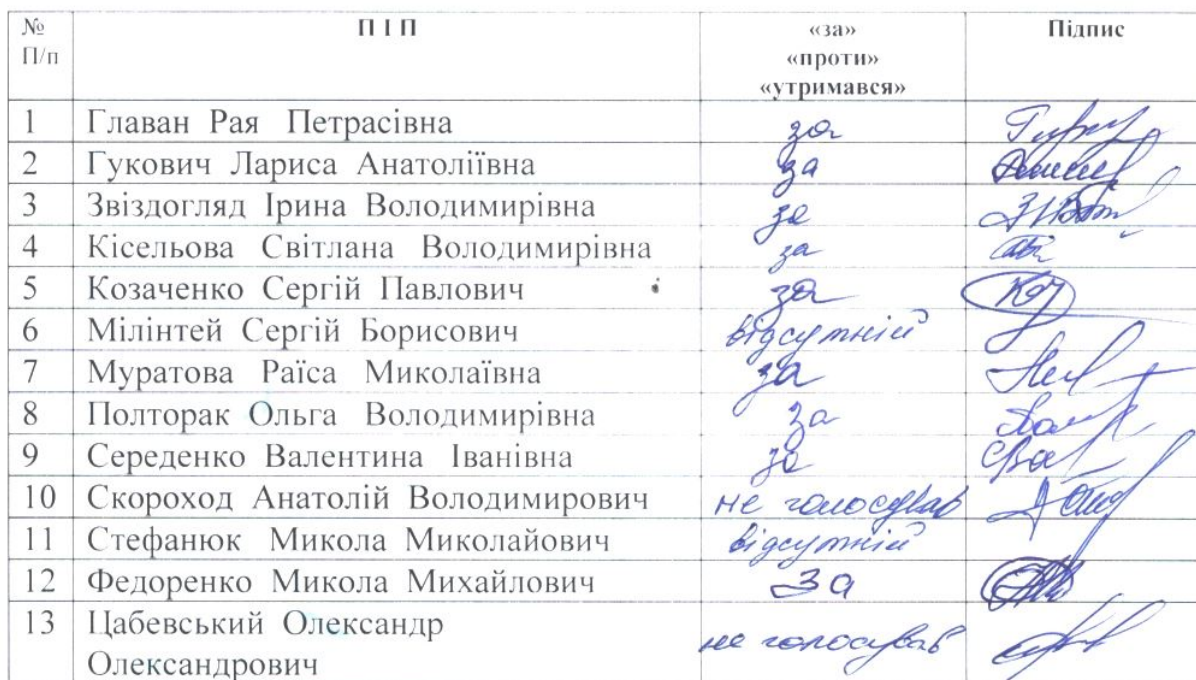 № П/п П І П «за» «проти» «утримався» Підпис
1 Главан Рая Петрасівна за
2 Гукович Лариса Анатоліївна за
3 Звіздогляд Ірина Володимирівна за
4 Кісельова Світлана Володимирівна за
5 Козаченко Сергій Павлович за
6 Мілінтей Сергій Борисович відсутній
7 Муратова Раїса Миколаївна за
8 Полторак Ольга Володимирівна за
9 Середенко Валентина Іванівна за
10 Скороход Анатолій Володимирович не голосував
11 Стефанюк Микола Миколайович відсутній
12 Федоренко Микола Михайлович за
13 Цабевський Олександр
Олександрович не голосував